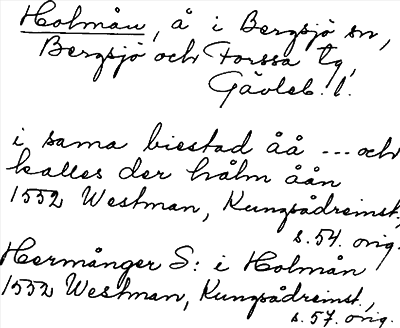 Holmån, å i Bergsjö sn,
Bergsjö och Forssa tg,
Gävleb. l.
i sama biestad åå --- och
kalles der hålm åån
1552 Westman, Kungsådreinst.,
s. 54. orig.
Hermånger S: i Holmån
1552 Westman, Kungsådreinst.,
s. 57. orig.